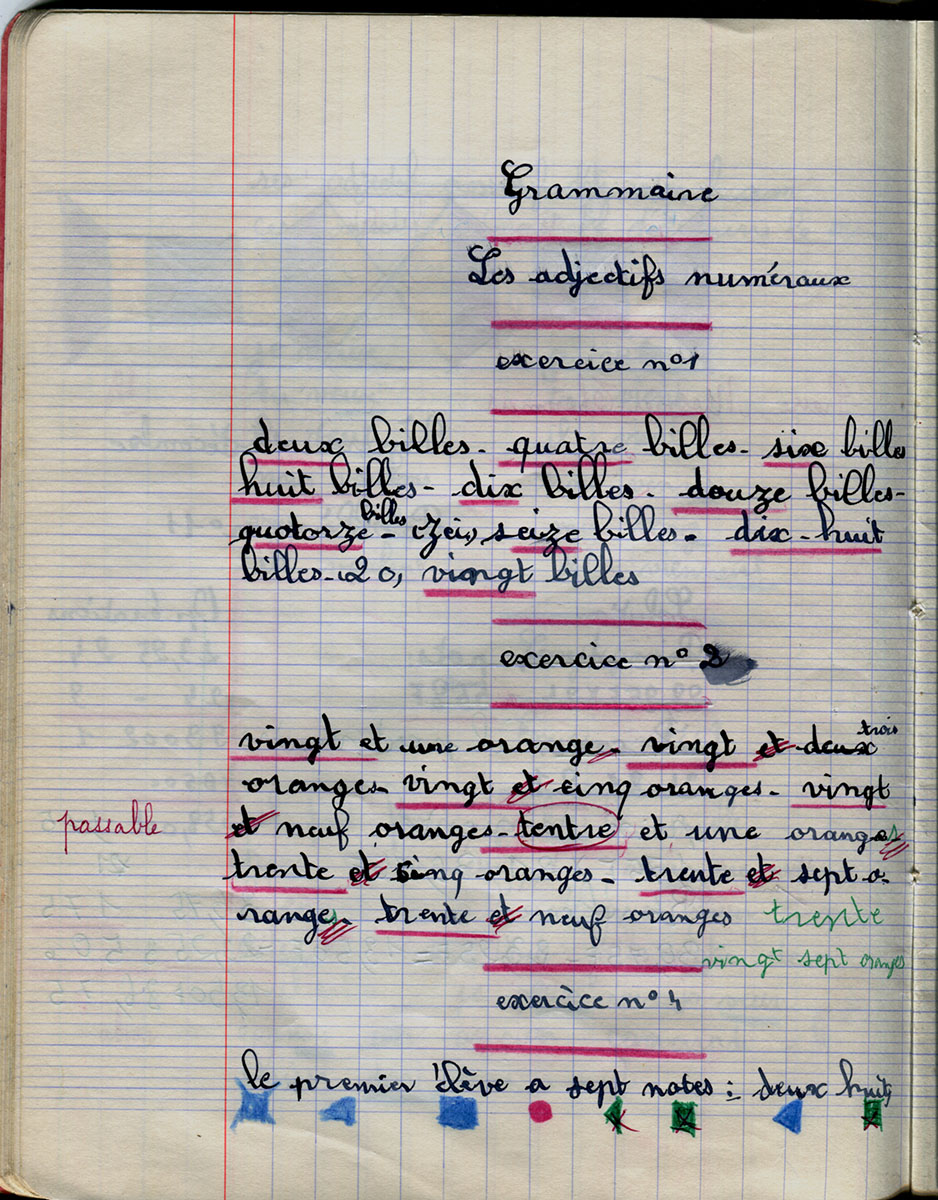 Grammaire
Les adjectifs numéraux
exercice n°1
deux billes - quatre billes - six billes
huit billes - dix billes - douze billes -
quotorze billes - (Zei), seize billes - dix-huit
billes - 20, vingt billes
exercice n° 2
vingt et une orange - vingt et deux trois
oranges - vingt et cinq oranges - vingt
passable et neuf oranges - tentre et une oranges
trente et cinq oranges - trente et sept o-
ranges - trente et neuf oranges trente
vingt sept oranges
exercice n° 4
le premier élève a sept notes : deux huit,